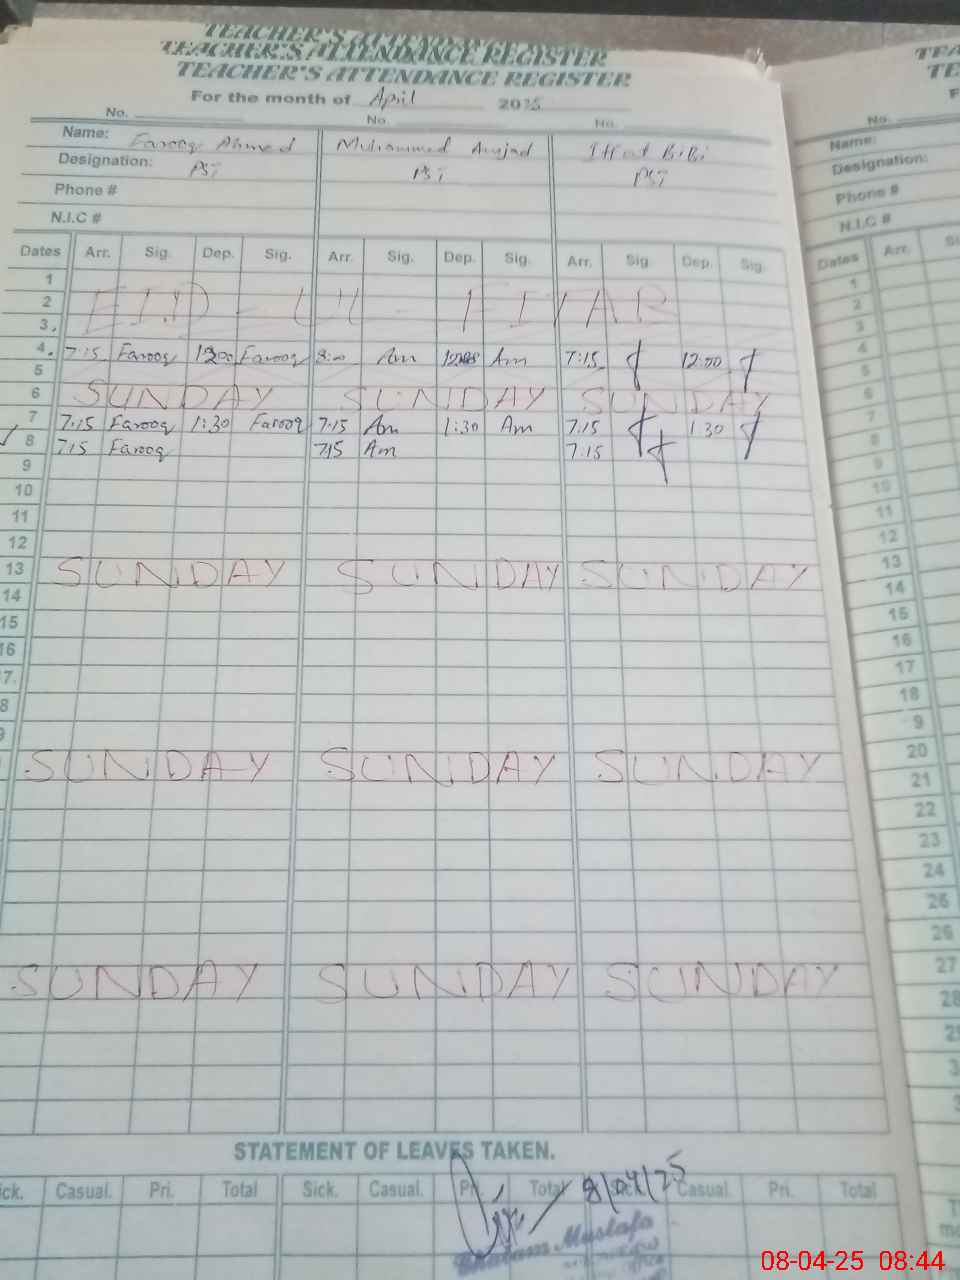 TEACHER'S ATTENDANCE REGISTER
TEACHER'S ATTENDANCE REGISTER
TEACHER'S ATTENDANCE REGISTER
For the month of April 2025
No. No. No.
Name: Farooq Ahmed Muhammad Amjad Iffat BiBi
Designation: PST PST PST
Phone #
N.I.C #
Dates Arr. Sig. Dep. Sig. Arr. Sig. Dep. Sig. Arr. Sig. Dep. Sig.
1
2 EID - UL - FITAR
3
4 7:15 Farooq 1200 Farooq 8:00 Am Am 7:15 12:00
5
6 SUNDAY SUNDAY SUNDAY
7 7.15 Farooq 1:30 Farooq 7.15 Am 1:30 Am 7.15 1 30
8 715 Farooq 715 Am 7.15
9
10
11
12
13 SUNDAY SUNDAY SUNDAY
14
15
16
17.
8
9
SUNDAY SUNDAY SUNDAY
SUNDAY SUNDAY SUNDAY
STATEMENT OF LEAVES TAKEN.
ick. Casual. Pri. Total Sick. Casual. Pri. Total Sick. Casual. Pri. Total
8/04/25
Ghulam Mustafa
TEA
TE
F
No.
Name:
Designation:
Phone #
N.I.C #
Dates Arr. Si
1
2
3
4
5
6
7
8
9
10
11
12
13
14
15
16
17
18
9
20
21
22
23
24
26
27
28
08-04-25 08:44